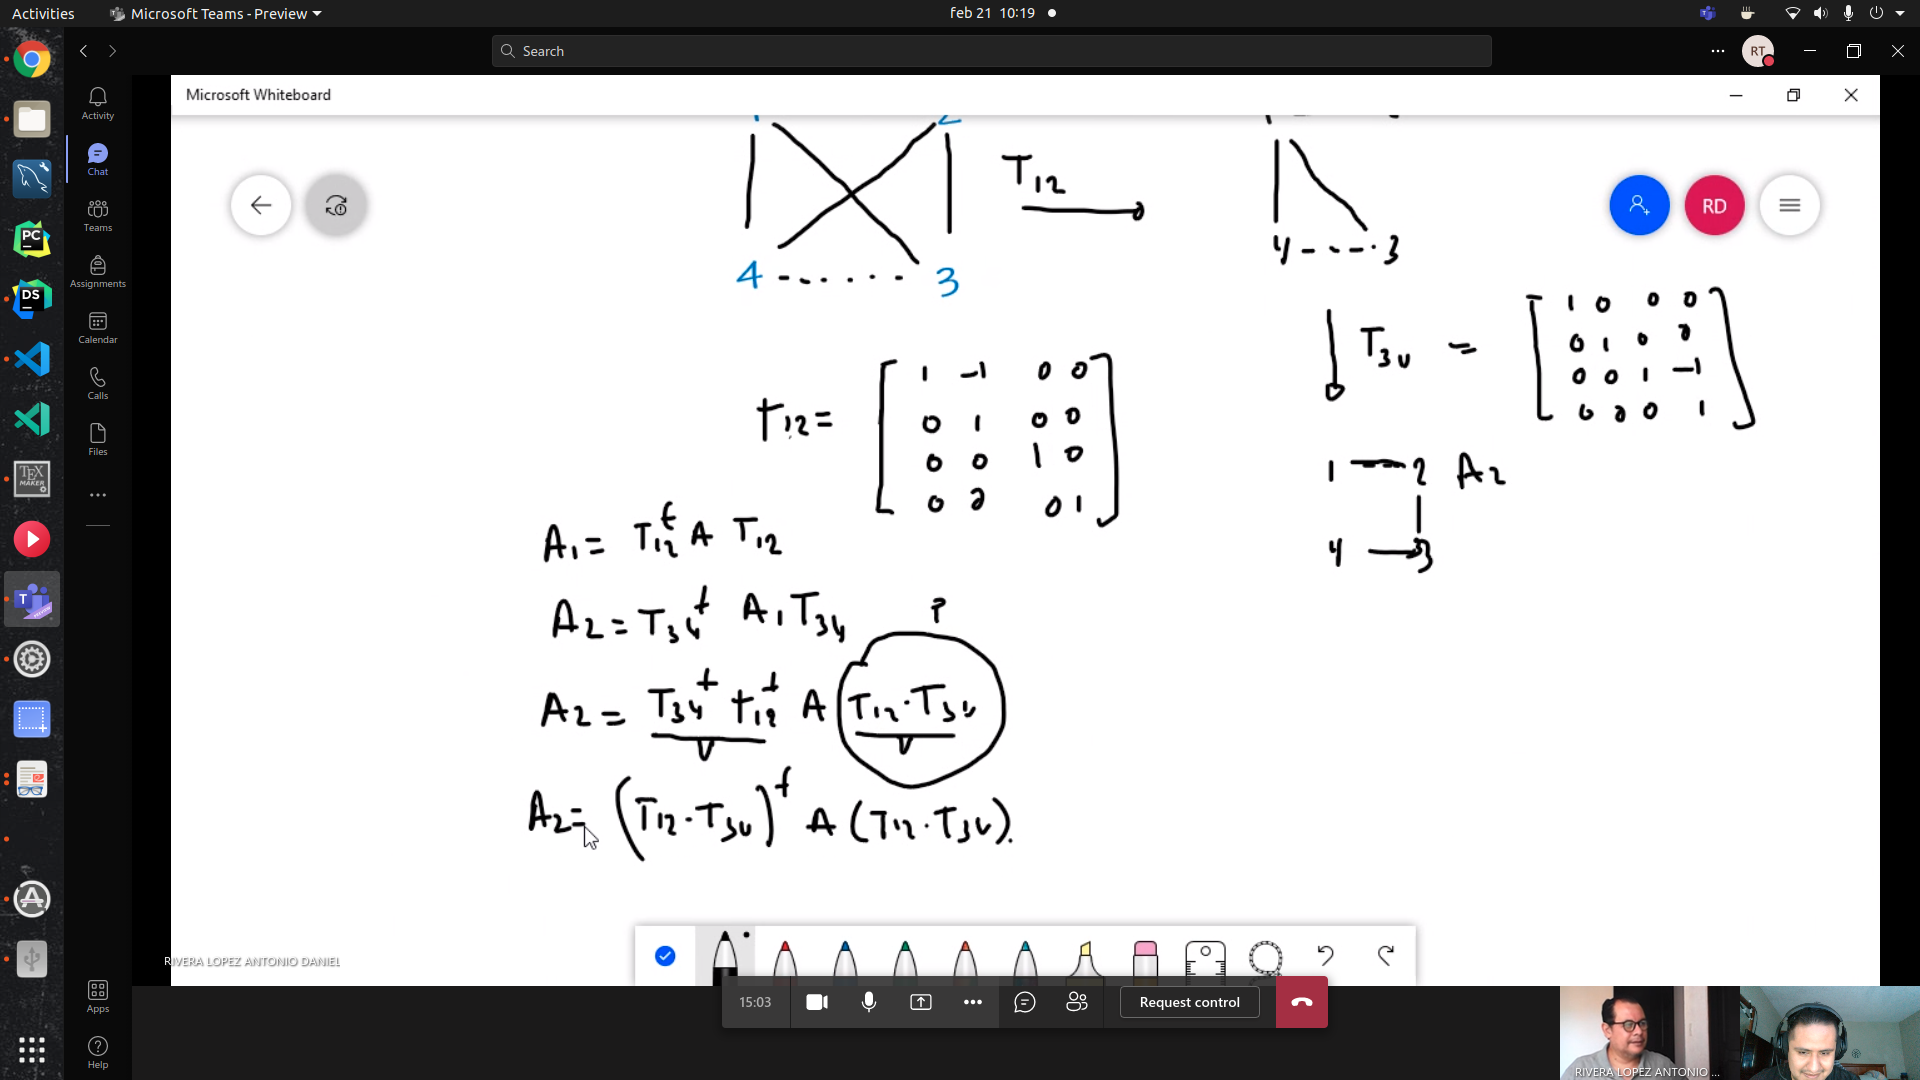 Activities
Microsoft Teams - Preview
feb 21 10:19
Search
RT
Activity
Chat
Teams
Assignments
Calendar
Calls
Files
Apps
Help
Microsoft Whiteboard
RD
1 2
T12
4 - - - - - - 3
4 - - - - 3
T34 =
1 0 0 0
0 1 0 0
0 0 1 -1
0 0 0 1
t12 =
1 -1 0 0
0 1 0 0
0 0 1 0
0 0 0 1
1 2 A2
4 3
A1 = T12^t A T12
A2 = T34^t A1 T34
P
A2 = T34^t t12^t A T12 · T34
A2 = (T12 · T34)^t A (T12 · T34).
RIVERA LOPEZ ANTONIO DANIEL
15:03
Request control
RIVERA LOPEZ ANTONIO ...
PC
DS
TEX MAKER
T